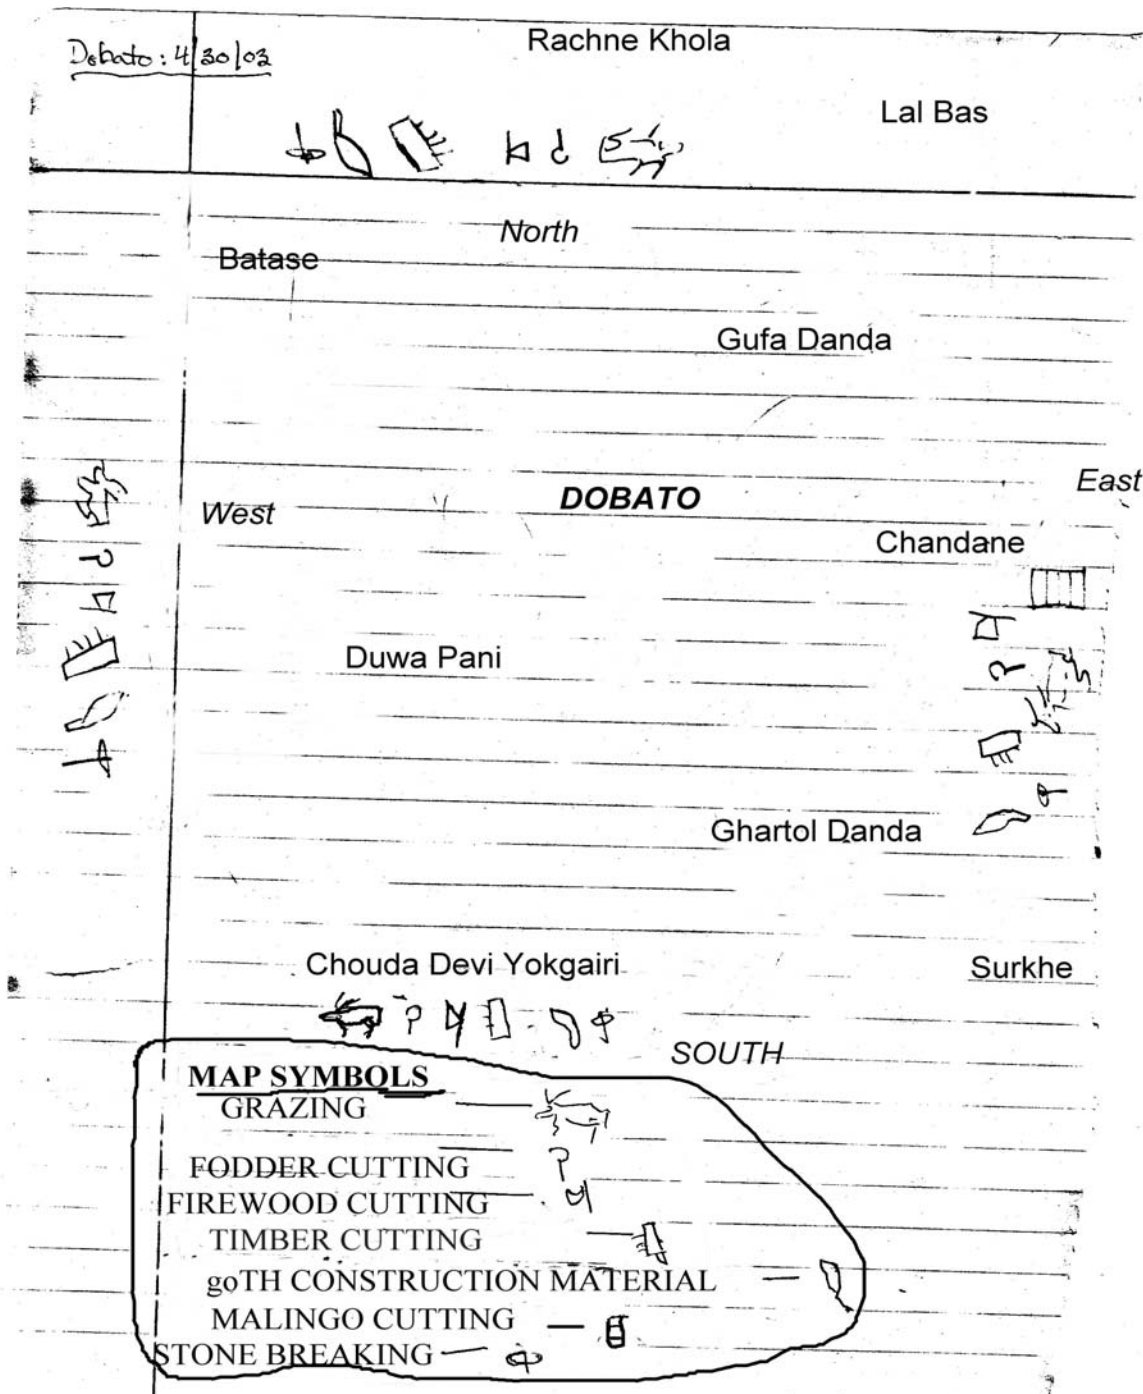 Dobato: 4/30/02
Rachne Khola
Lal Bas
North
Batase
Gufa Danda
East
West
DOBATO
Chandane
Duwa Pani
Ghartol Danda
Chouda Devi Yokgairi
Surkhe
SOUTH
MAP SYMBOLS
GRAZING
FODDER CUTTING
FIREWOOD CUTTING
TIMBER CUTTING
goTH CONSTRUCTION MATERIAL
MALINGO CUTTING
STONE BREAKING